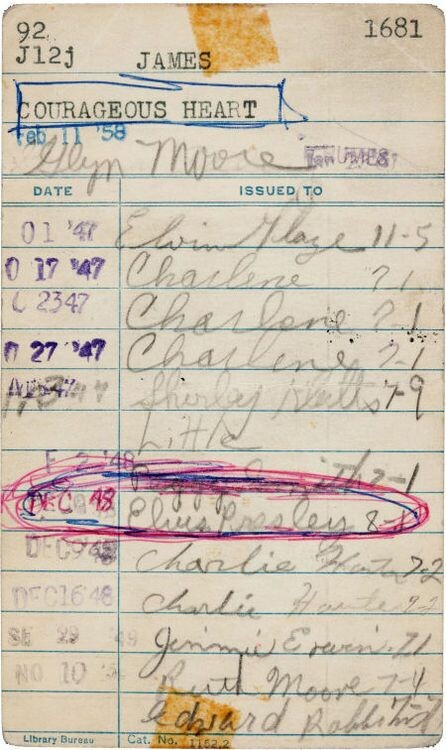 92 1681
J12j JAMES
COURAGEOUS HEART
Feb 11 '58
Glyn Moore
DATE ISSUED TO
01 '47 Elvin Glaze 11-5
0 17 '47 Charlene 7-1
2347 Charlene 7-1
27 '47 Charlene 7-1
Shirley 7-9
Little
F 2 '48 Peggy Smith 7-1
DEC 48 Elvis Presley 8-1
DEC 9 48 Charlie 7-2
DEC 16 48 Charlie
SE 29 49 Jimmie Erwin 71
NO 10 Ruth Moore 7-4
Edward
Library Bureau Cat. No. 1152.2